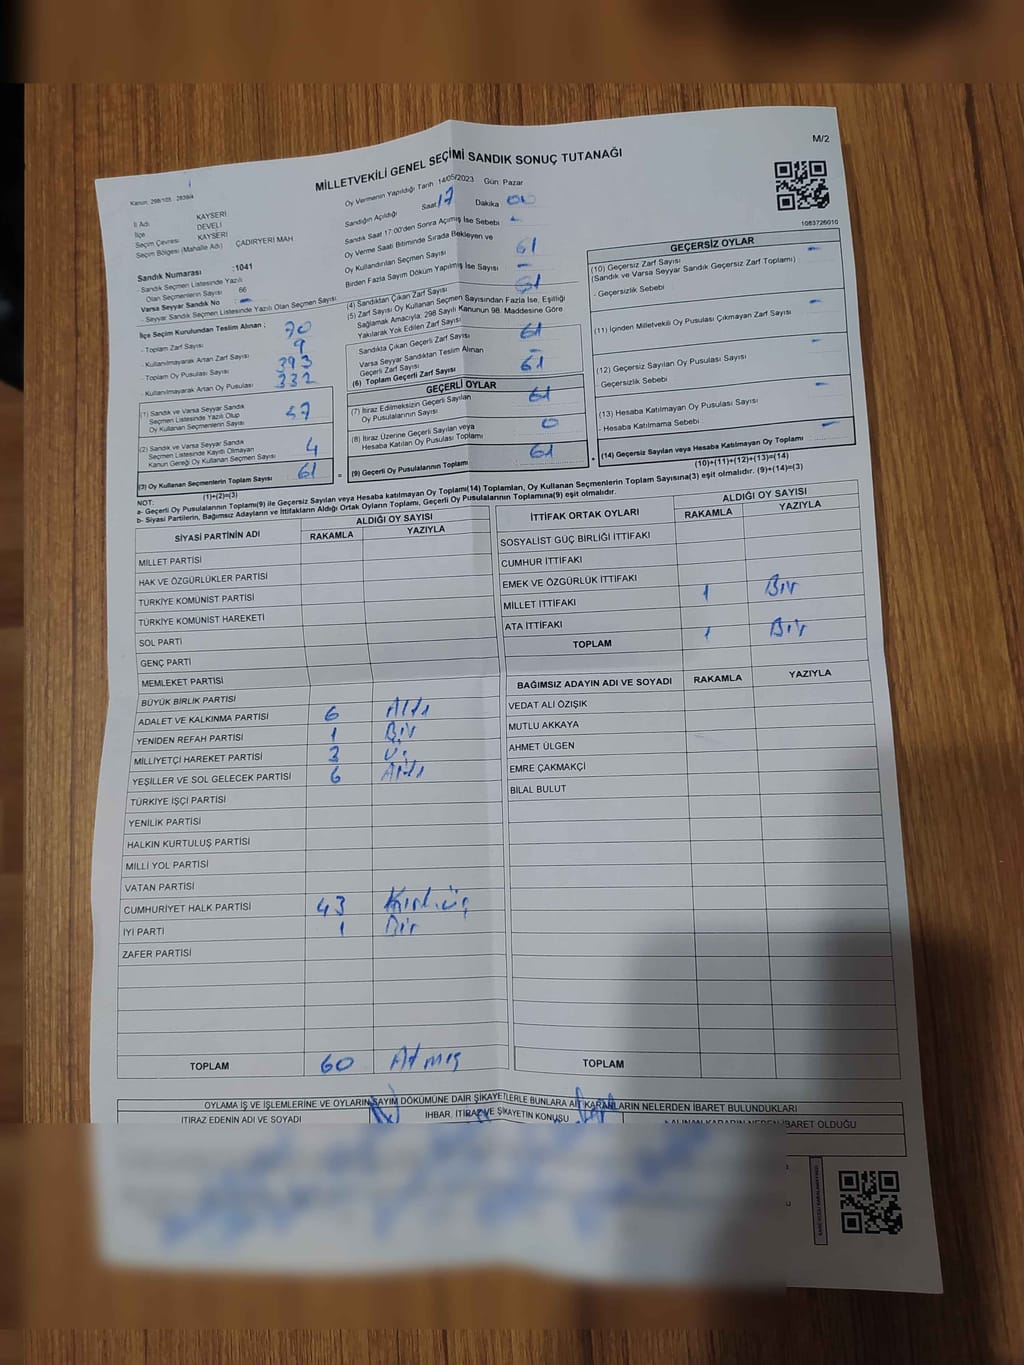 M/2
MİLLETVEKİLİ GENEL SEÇİMİ SANDIK SONUÇ TUTANAĞI
Kanun, 298/105
1083726010
İl Adı KAYSERİ
İlçe DEVELİ
Seçim Çevresi KAYSERİ
Seçim Bölgesi (Mahalle Adı) ÇADIRYERİ MAH
Sandık Numarası :1041
- Sandık Seçmen Listesinde Yazılı
Olan Seçmenlerin Sayısı 66
Varsa Seyyar Sandık No : -
- Seyyar Sandık Seçmen Listesinde Yazılı Olan Seçmen Sayısı
İlçe Seçim Kurulundan Teslim Alınan ;
- Toplam Zarf Sayısı 70
- Kullanılmayarak Artan Zarf Sayısı 9
- Toplam Oy Pusulası Sayısı 393
- Kullanılmayarak Artan Oy Pusulası 332
(1) Sandık ve Varsa Seyyar Sandık
Seçmen Listesinde Yazılı Olup
Oy Kullanan Seçmenlerin Sayısı 57
(2) Sandık ve Varsa Seyyar Sandık
Seçmen Listesinde Kayıtlı Olmayan
Kanun Gereği Oy Kullanan Seçmen Sayısı 4
(3) Oy Kullanan Seçmenlerin Toplam Sayısı 61
(1)+(2)=(3)
Oy Vermenin Yapıldığı Tarih :14/05/2023 Gün: Pazar
Sandığın Açıldığı Saat 17 Dakika 00
Sandık Saat 17:00'den Sonra Açılmış İse Sebebi -
Oy Verme Saati Bitiminde Sırada Bekleyen ve
Oy Kullandırılan Seçmen Sayısı 61
Birden Fazla Sayım Döküm Yapılmış İse Sayısı -
(4) Sandıktan Çıkan Zarf Sayısı 61
(5) Zarf Sayısı Oy Kullanan Seçmen Sayısından Fazla İse, Eşitliği
Sağlamak Amacıyla; 298 Sayılı Kanunun 98. Maddesine Göre
Yakılarak Yok Edilen Zarf Sayısı
Sandıkta Çıkan Geçerli Zarf Sayısı 61
Varsa Seyyar Sandıktan Teslim Alınan
Geçerli Zarf Sayısı -
(6) Toplam Geçerli Zarf Sayısı 61
GEÇERLİ OYLAR
(7) İtiraz Edilmeksizin Geçerli Sayılan
Oy Pusulalarının Sayısı 61
(8) İtiraz Üzerine Geçerli Sayılan veya
Hesaba Katılan Oy Pusulası Toplamı 0
= (9) Geçerli Oy Pusulalarının Toplamı 61
GEÇERSİZ OYLAR
(10) Geçersiz Zarf Sayısı -
(Sandık ve Varsa Seyyar Sandık Geçersiz Zarf Toplamı)
- Geçersizlik Sebebi
(11) İçinden Milletvekili Oy Pusulası Çıkmayan Zarf Sayısı -
(12) Geçersiz Sayılan Oy Pusulası Sayısı -
Geçersizlik Sebebi
(13) Hesaba Katılmayan Oy Pusulası Sayısı -
- Hesaba Katılmama Sebebi
+ (14) Geçersiz Sayılan veya Hesaba Katılmayan Oy Toplamı -
(10)+(11)+(12)+(13)=(14)
NOT:
a- Geçerli Oy Pusulalarının Toplamı(9) ile Geçersiz Sayılan veya Hesaba katılmayan Oy Toplamı(14) Toplamları, Oy Kullanan Seçmenlerin Toplam Sayısına(3) eşit olmalıdır. (9)+(14)=(3)
b- Siyasi Partilerin, Bağımsız Adayların ve İttifakların Aldığı Ortak Oyların Toplamı, Geçerli Oy Pusulalarının Toplamına(9) eşit olmalıdır.
SİYASİ PARTİNİN ADI ALDIĞI OY SAYISI
RAKAMLA YAZIYLA
MİLLET PARTİSİ
HAK VE ÖZGÜRLÜKLER PARTİSİ
TÜRKİYE KOMÜNİST PARTİSİ
TÜRKİYE KOMÜNİST HAREKETİ
SOL PARTİ
GENÇ PARTİ
MEMLEKET PARTİSİ
BÜYÜK BİRLİK PARTİSİ
ADALET VE KALKINMA PARTİSİ 6 Altı
YENİDEN REFAH PARTİSİ 1 Bir
MİLLİYETÇİ HAREKET PARTİSİ 3 Üç
YEŞİLLER VE SOL GELECEK PARTİSİ 6 Altı
TÜRKİYE İŞÇİ PARTİSİ
YENİLİK PARTİSİ
HALKIN KURTULUŞ PARTİSİ
MİLLİ YOL PARTİSİ
VATAN PARTİSİ
CUMHURİYET HALK PARTİSİ 43 Kırküç
İYİ PARTİ 1 Bir
ZAFER PARTİSİ
TOPLAM 60 Atmış
İTTİFAK ORTAK OYLARI ALDIĞI OY SAYISI
RAKAMLA YAZIYLA
SOSYALİST GÜÇ BİRLİĞİ İTTİFAKI
CUMHUR İTTİFAKI
EMEK VE ÖZGÜRLÜK İTTİFAKI
MİLLET İTTİFAKI 1 Bir
ATA İTTİFAKI
TOPLAM 1 Bir
BAĞIMSIZ ADAYIN ADI VE SOYADI RAKAMLA YAZIYLA
VEDAT ALİ ÖZIŞIK
MUTLU AKKAYA
AHMET ÜLGEN
EMRE ÇAKMAKÇİ
BİLAL BULUT
TOPLAM
OYLAMA İŞ VE İŞLEMLERİNE VE OYLARIN SAYIM DÖKÜMÜNE DAİR ŞİKAYETLERLE BUNLARA AİT KARARLARIN NELERDEN İBARET BULUNDUKLARI
İTİRAZ EDENİN ADI VE SOYADI İHBAR, İTİRAZ VE ŞİKAYETİN KONUSU ALINAN KARARIN NEDEN İBARET OLDUĞU